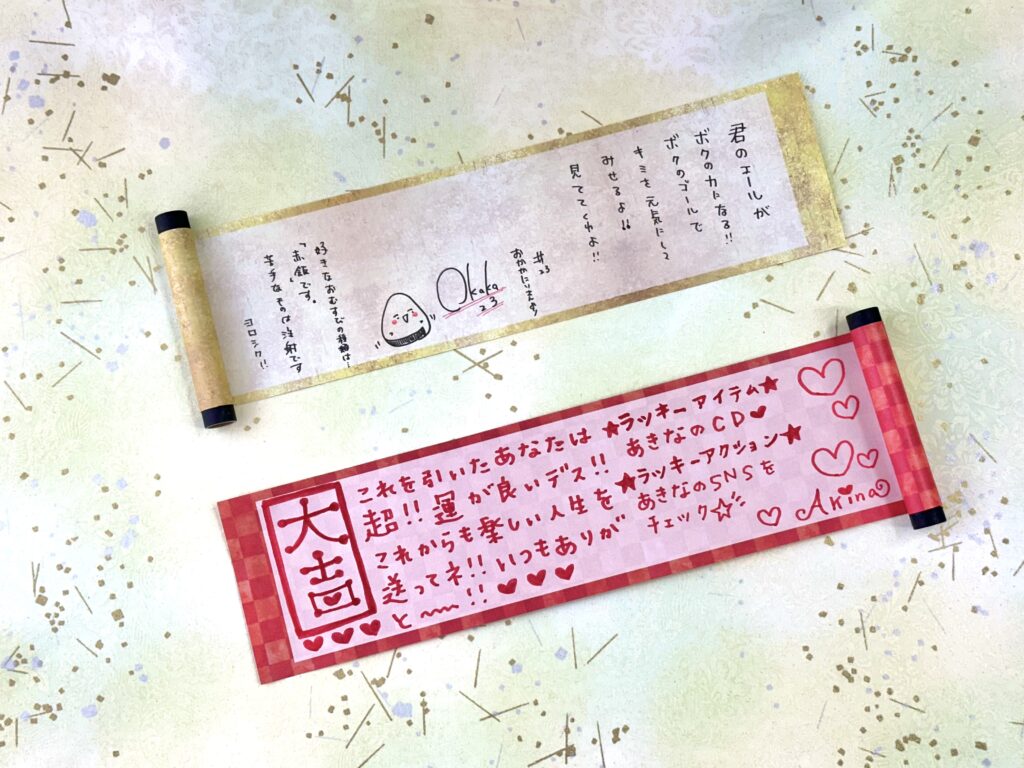 君のエールが
ボクの力になる!!
ボクのゴールで
キミを元気にして
みせるよ!!
見ててくれよ!!
#23
Okaka
23
好きなおむすびの種類は…
「赤飯」です。
苦手なものは注射です
ヨロシク!!
大吉
これを引いたあなたは
超!!運が良いデス!!
これからも楽しい人生を
送ってネ!!いつもありが
と〜〜!!♥♥♥
★ラッキーアイテム★
あきなのCD♥
★ラッキーアクション★
あきなのSNSを
チェック☆
Akina